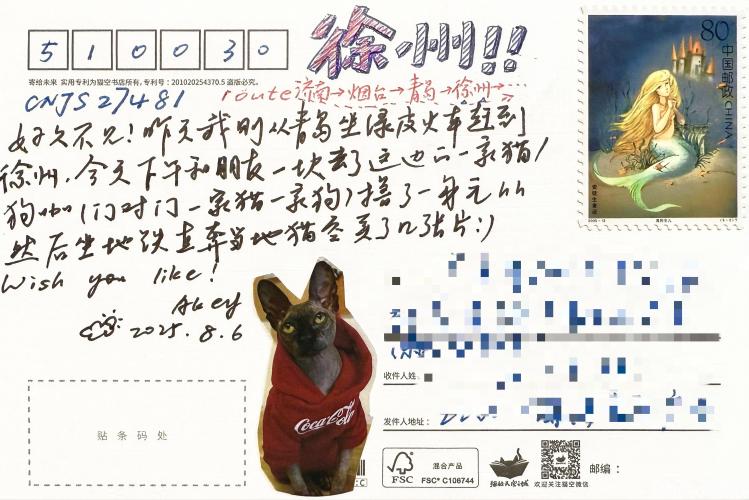 510030
徐州!!
80
中国邮政 CHINA
寄给未来 实用专利为猫空书店所有,专利号:201020254370.5 盗版必究。
CNJS27481
route 济南→烟台→青岛→徐州→…
好久不见!昨天我刚从青岛坐绿皮火车赶到
徐州,今天下午和朋友一块去了这边的一家猫/
狗咖(门对门一家猫一家狗)撸了一身毛hh
然后坐地铁直奔当地猫空买了几张片:)
Wish you like!
Akey
2025.8.6
安徒生童话
Coca-Cola
收件人姓名:
发件人地址:
贴条码处
FSC
混合产品
FSC® C106744
猫的天空之城
欢迎关注猫空微信
邮编: